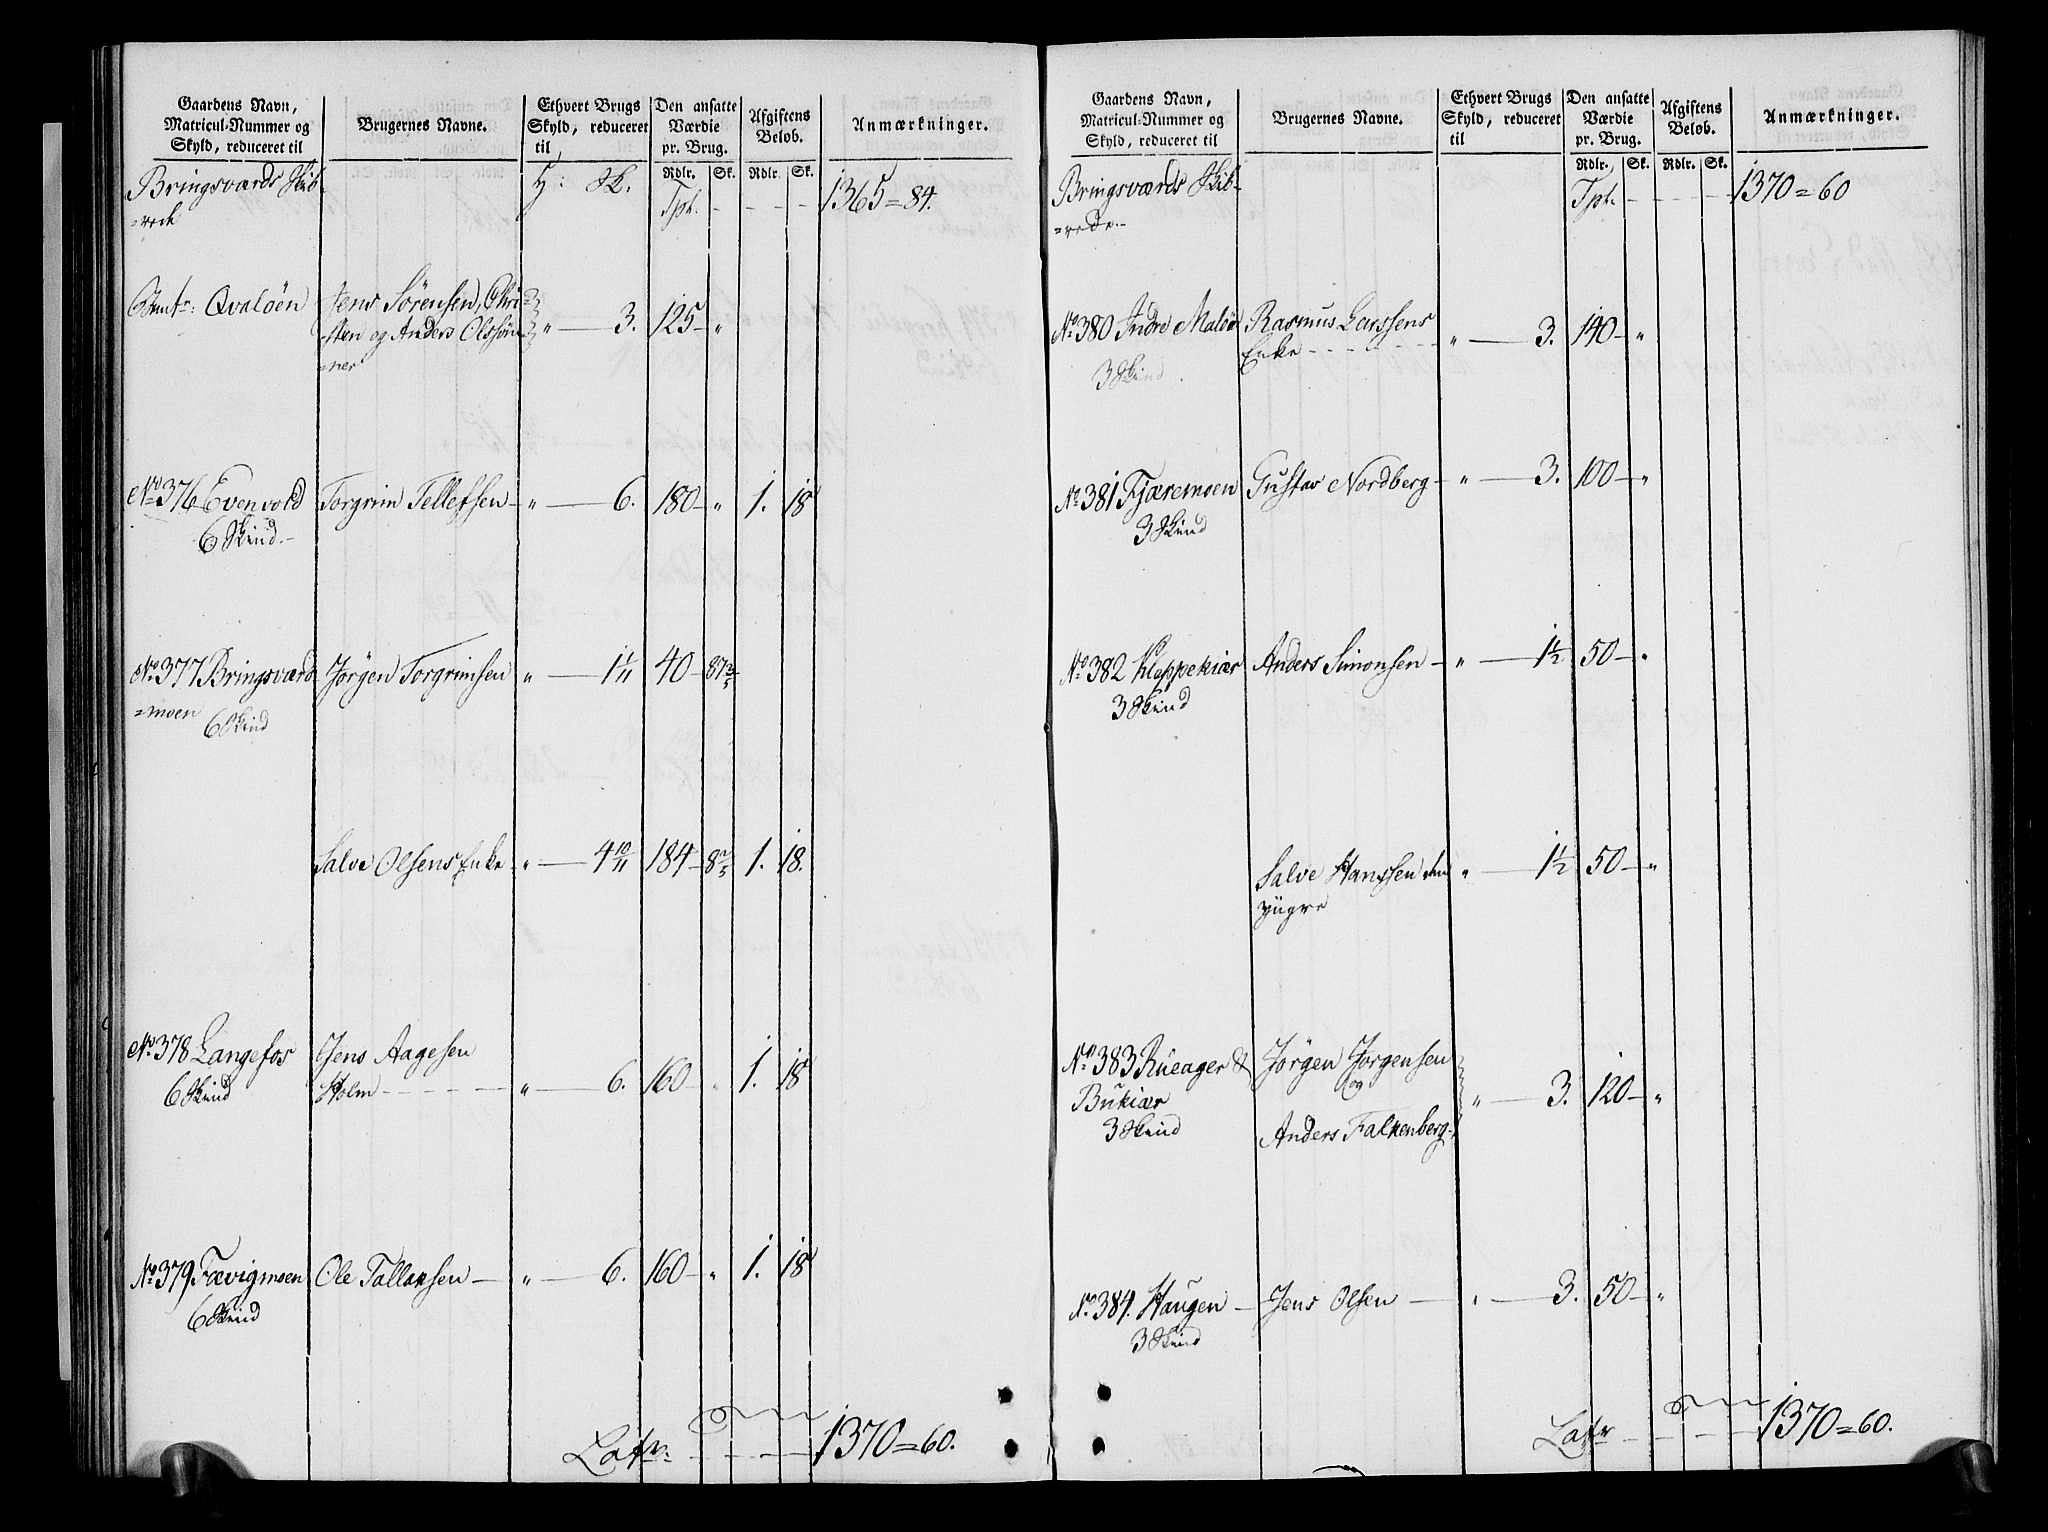 Gaardens Navn,
Matricul-Nummer og
Skyld, reduceret til
Brugernes Navne.
Ethvert Brugs
Skyld, reduceret
til
Den ansatte
Værdie
pr. Brug.
Afgiftens
Beløb.
Anmærkninger.
Rdlr. Sk. Rdlr. Sk.
Bringsværds Skib-
=rede
H: Sk. Tpt. - - - - 1365=84.
Qvaløen Jens Sørensen, Chri-
sten og Anders Olssøn- " — 3. 125- "
=ner
No 376 Evenvold Torgrim Tellefsen - " — 6. 180- " 1. 18
6 Skind.-
No 377 Bringsværd Jørgen Torgrimsen " — 1 1/11 40- 87 3/5
=moen
6 Skind
Salve Olsens Enke - " — 4 10/11 184- 8 2/5 1. 18.
No 378 Langefos Jens Aagesen
6 Skind Holm - - - - " — 6. 160- " 1. 18
No 379 Fævigmoen Ole Tallaksen — " — 6. 160- " 1. 18
6 Skind
Latr: - - - - 1370=60.
Gaardens Navn,
Matricul-Nummer og
Skyld, reduceret til
Brugernes Navne.
Ethvert Brugs
Skyld, reduceret
til
Den ansatte
Værdie
pr. Brug.
Afgiftens
Beløb.
Anmærkninger.
Rdlr. Sk. Rdlr. Sk.
Bringsværds Skib-
=rede.-
Tpt. - - - - 1370=60
No 380 Indre Maløe Rasmus Larssens
Enke - - - - " — 3. 140- "
3 Skind
No 381 Fjæremoen Gustav Nordberg - " — 3. 100- "
3 Skind
No 382 Kleppekiær Anders Simonsen - " — 1 1/2 50- "
3 Skind
Salve Hanssen den " — 1 1/2 50- "
yngre
No 383 Rueager &
Bukiær
3 Skind
Jørgen Jørgensen
og
Anders Falkenberg-
" — 3. 120- "
No 384. Haugen — Jens Olsen — " — 3. 50- "
3 Skind
Latr - - - - 1370=60.